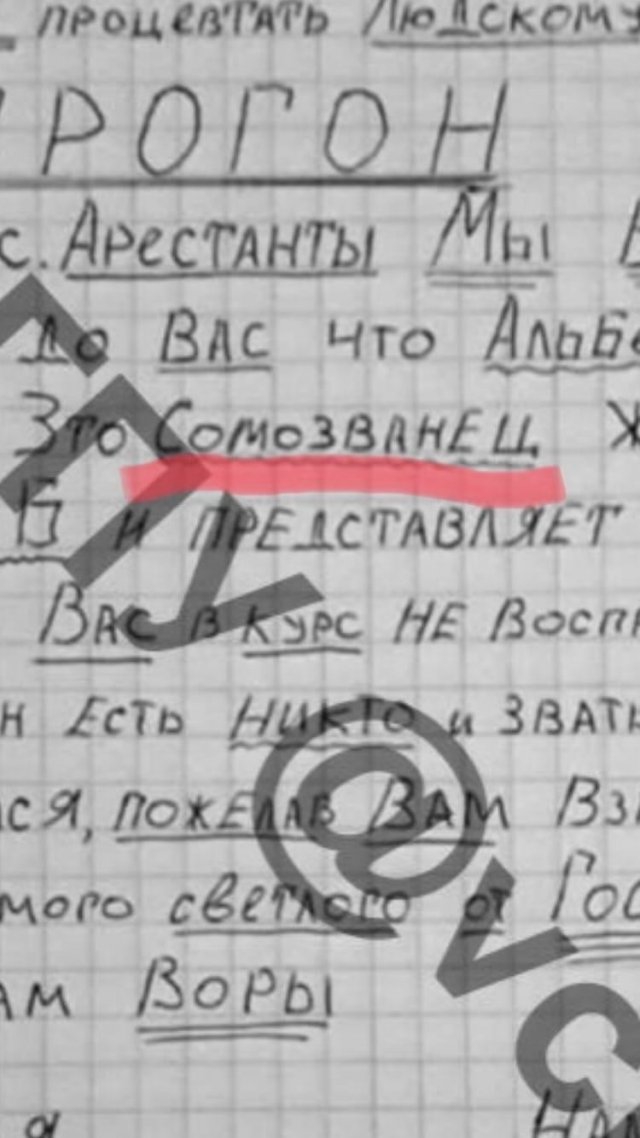 процевтать Людскому
РОГОН
с. Арестанты Мы
до Вас что Альбе
Это Сомозванец Ж
Б и представляет
Вас в курс не Восп
н Есть Никто и звать
ся, пожелав Вам Вз
мого светлого от Гос
ам Воры
я На
ГПУ @vc